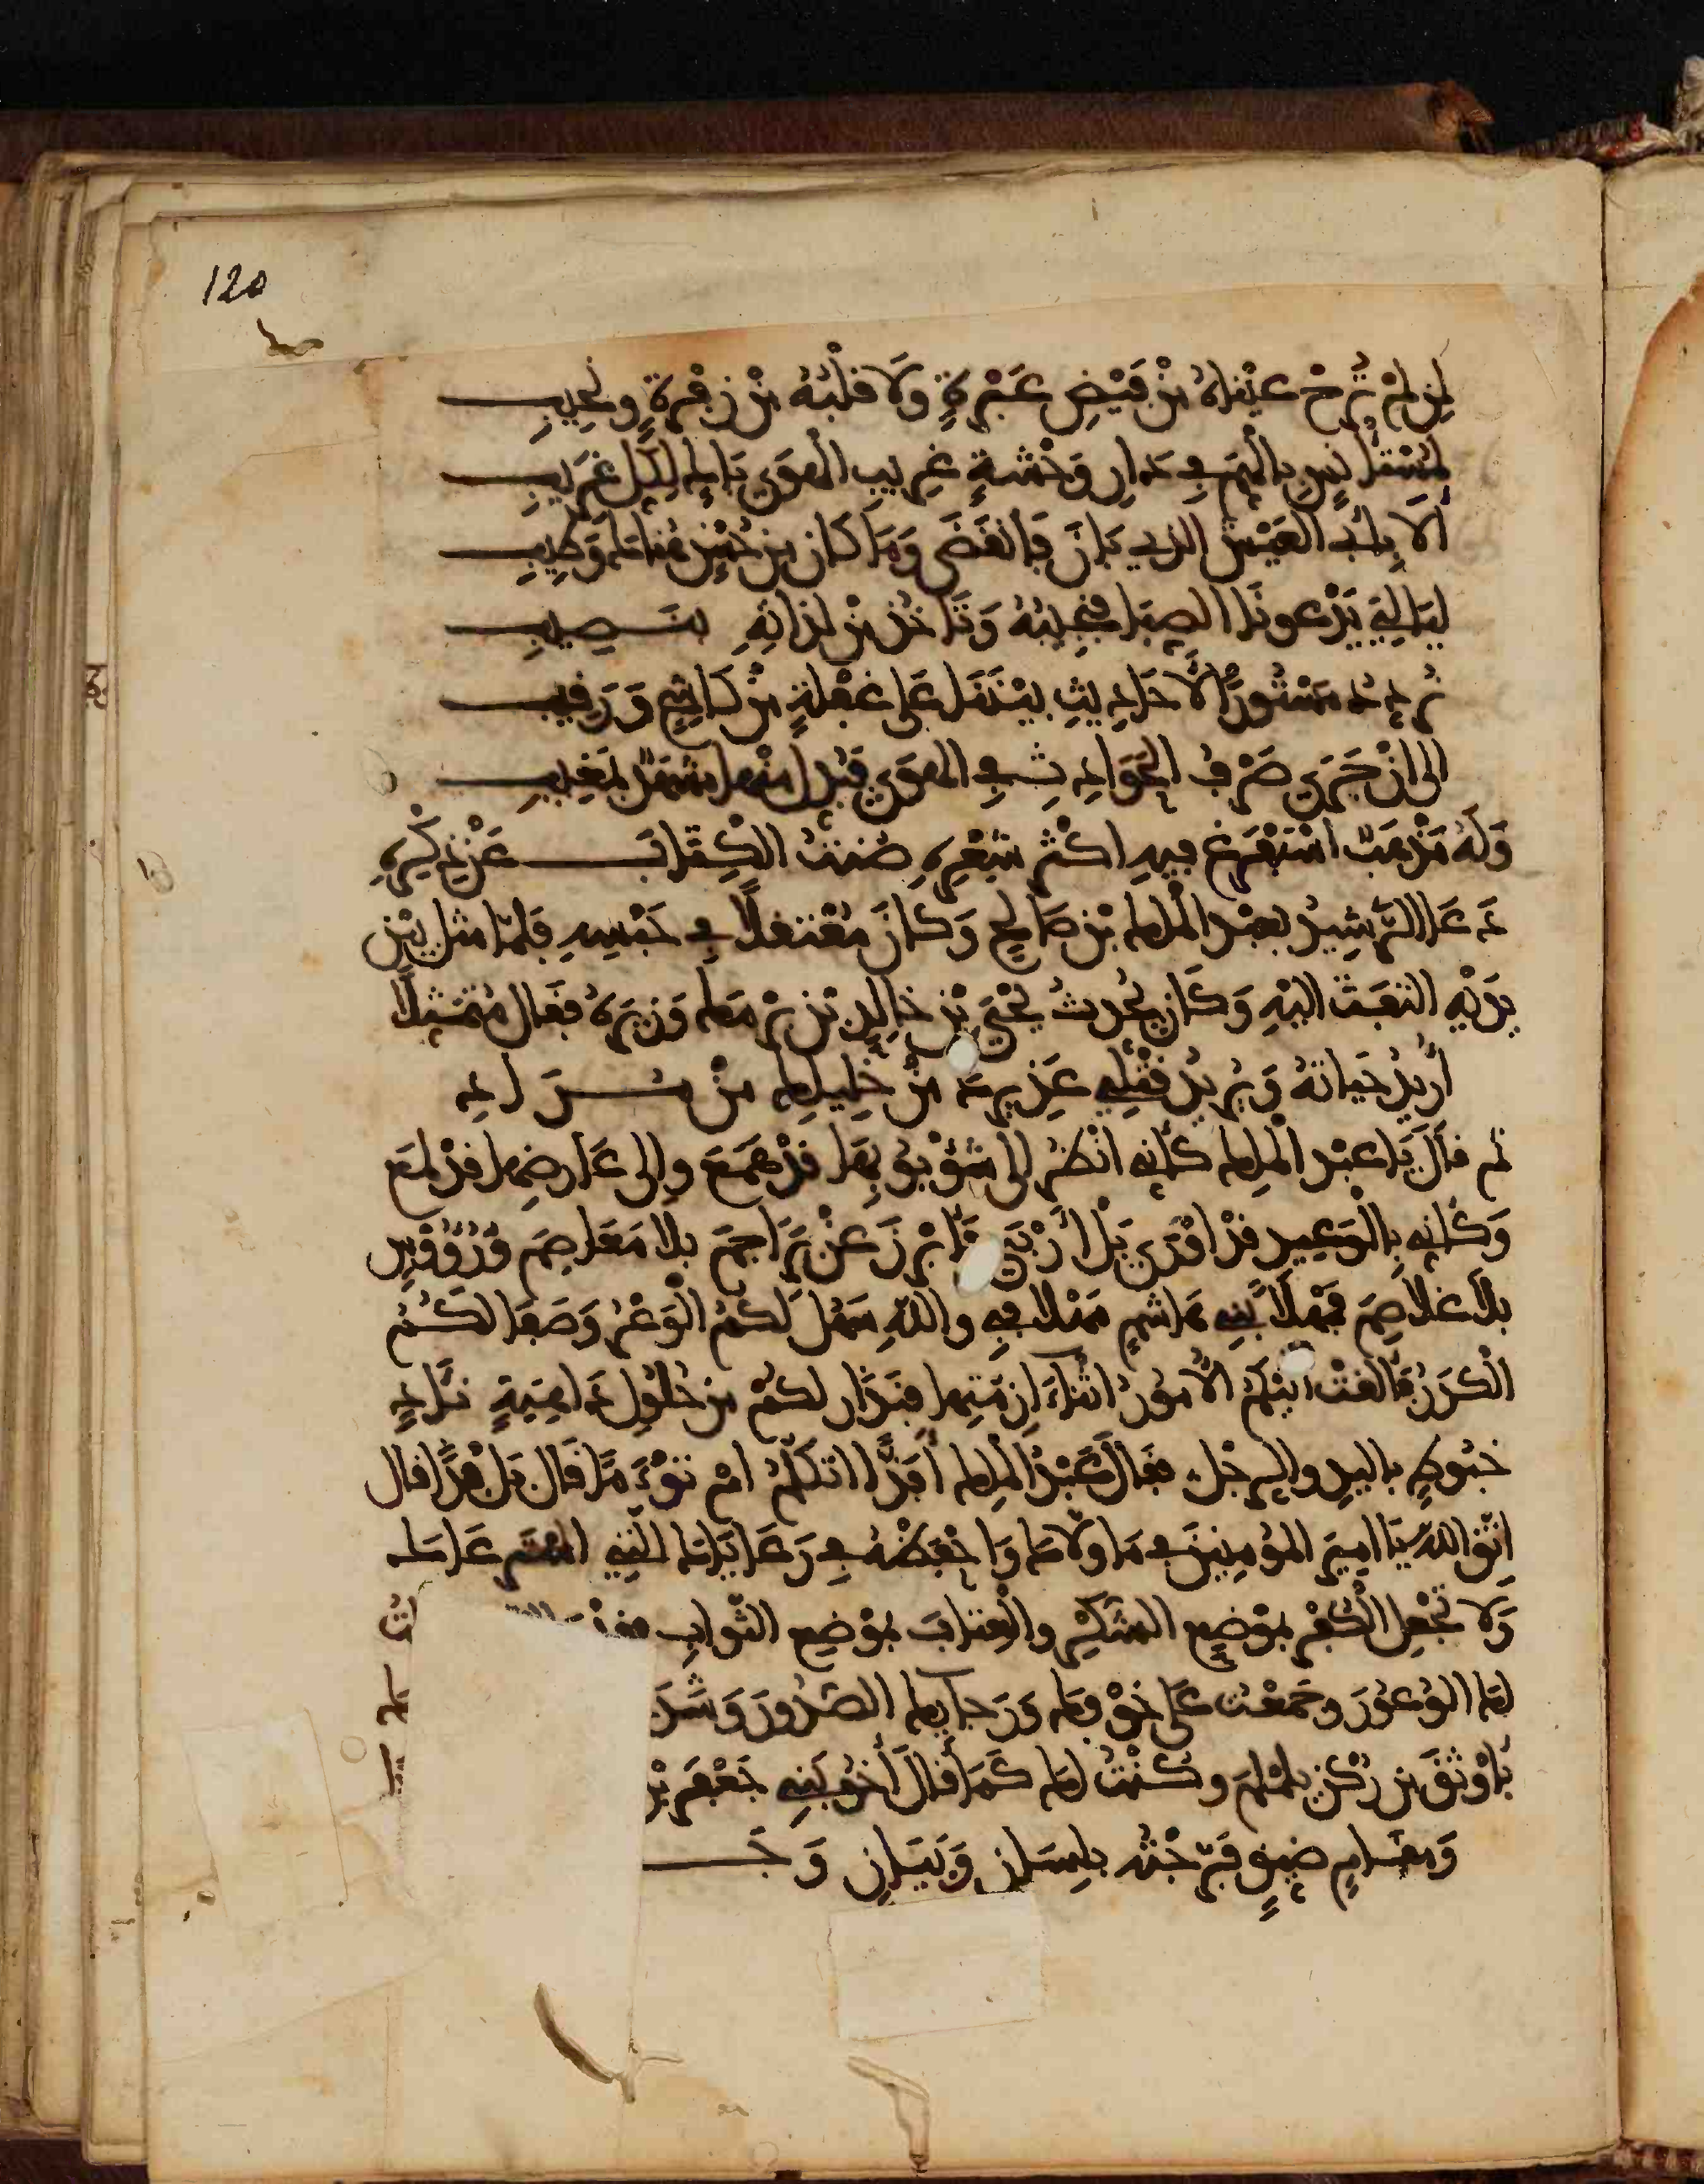 120
لمن لم تُرح عيناه من فيض عبرة ولا قلبه من زفرة ونحيب
لمستأنس بالهم في دار وحشة غريب الهوى باك لكل غريب
ألا بأبي العيش الذي بان فانقضى وما كان من حسن هناك وطيب
ليالي يدعونا الصبا فنجيبه ونأخذ من لذاته بنصيب
نردد مستور الأحاديث بيننا على غفلة من كاشح ورقيب
إلى أن جرى صرف الحوادث في الهوى فبدل منها مشهدا بمغيب
وله مذهب استفرغ فيه أكثر شعره صنت الكتاب عن ذكره
دعا الرشيد بعبد الملك بن صالح وكان معتقلا في حبسه فلما مثل بين
يديه التفت إليه وكان يحدث يحيى بن خالد بن برمك وزيره فقال متمثلا
أريد حياته ويريد قتلي عذيرك من خليلك من مراد
ثم قال يا عبد الملك كأني أنظر إلى شؤبوبها قد همع وإلى عارضها قد لمع
وكأني بالوعيد قد أورى بل أدمى فأبرز عن براجم بلا معاصم ورؤوس
بلا غلاصم فمهلا بني هاشم فمهلا فبي والله سهل لكم الوعر وصفا لكم
الكدر وألقت إليكم الأمور أثناء أزمتها فبدار لكم من حلول داهية نآد
خبوط باليد والرجل فقال عبد الملك أفذا أتكلم أم توءما قال بل فذا قال
اتق الله يا أمير المؤمنين في ما ولاك واحفظه في رعاياك التي استرعاك
ولا تجعل الكفر بموضع الشكر والعقاب موضع الثواب فقد
لك الوعور وجمعت على خوفك ورجائك الصدور وشد
بأوثق من ركن يلملم وكنت لك كما قال أخو بني جعفر بن
ومقام ضيق فرجته بلسان وبيان وجد